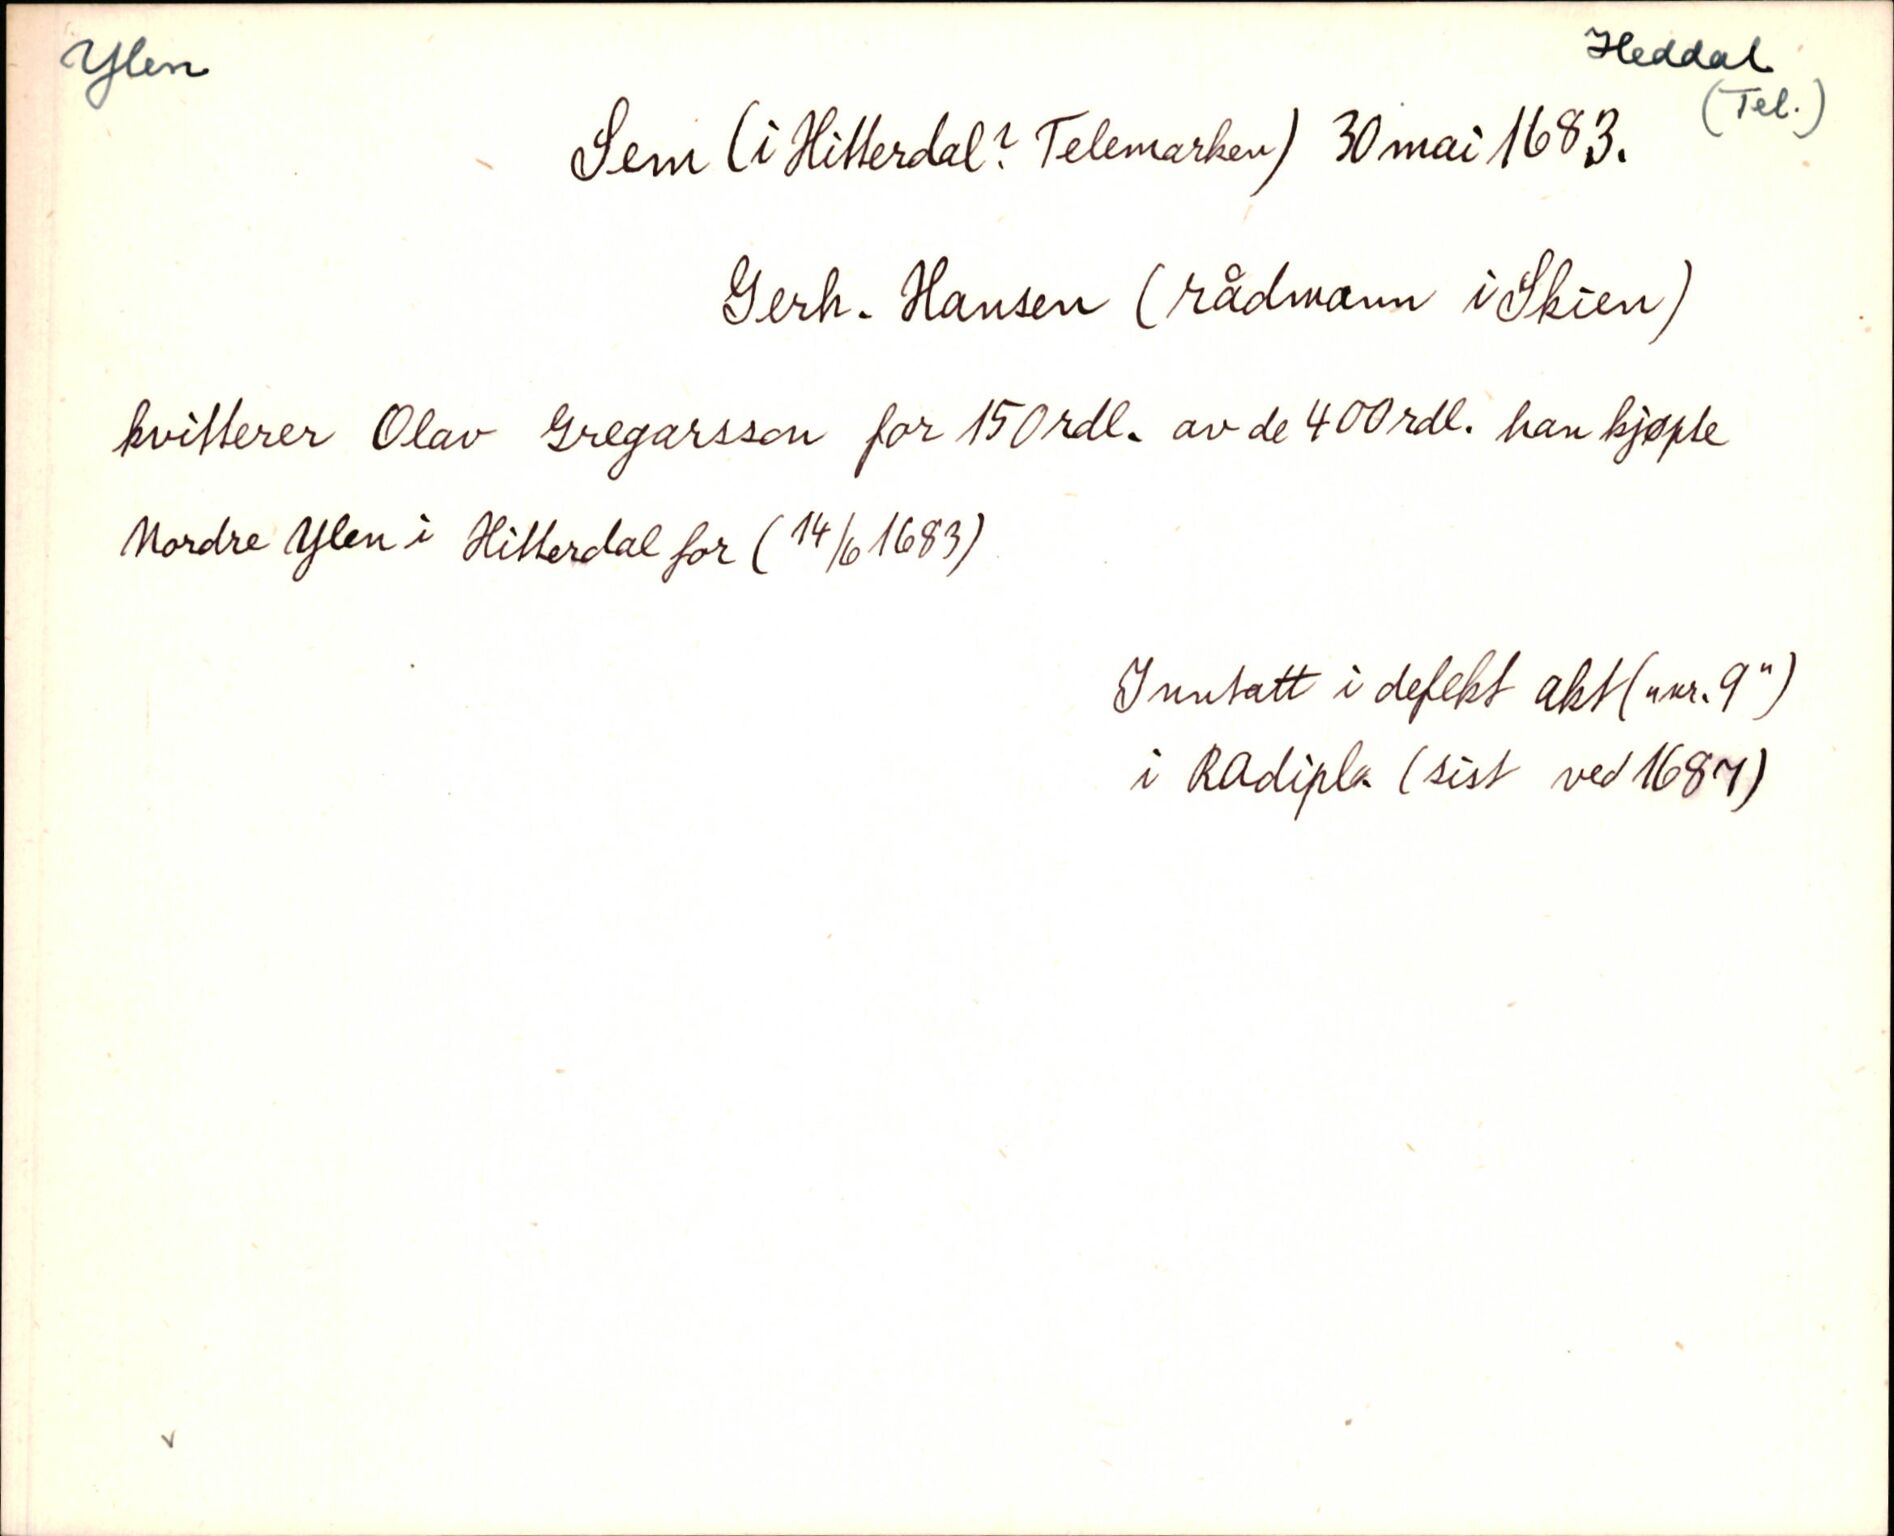 Ylen
Heddal
(Tel.)
Sem (i Hitterdal? Telemarken) 30 mai 1683.
Gerh. Hansen (rådmann i Skien)
kvitterer Olav Gregarsson for 150 rdl. av de 400 rdl. han kjøpte
Nordre Ylen i Hitterdal for (14/6 1683)
Inntatt i defekt akt ("nr. 9")
i RAdipl. (sist ved 1687)